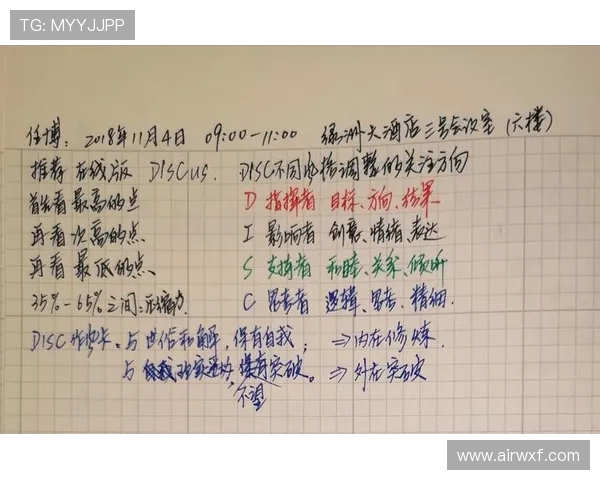 TG: MYYJJPP
任博: 2018年11月4日 09:00-11:00 绿洲大酒店三号会议室 (六楼)
推荐 在线版 DISCUS. DISC不同风格调整的关注方向
首先看最高的点 D 指挥者 目标、方向、结果
再看次高的点 I 影响者 创意、情绪、表达
再看最低的点 S 支持者 和睦、关系、倾听
35%-65%之间: C 思考者 逻辑、思考、精细.
DISC 与世俗和解, 保有自我; ⇒内在修炼
与 突破。⇒外在突破
不望
www.airwxf.com